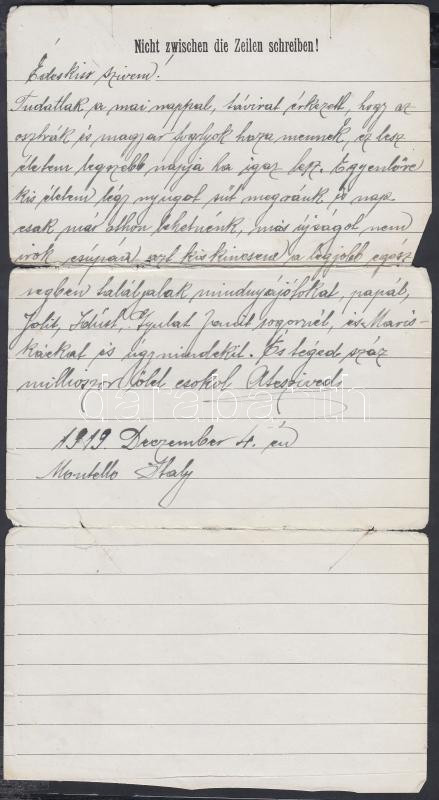 Nicht zwischen die Zeilen schreiben!
Édeskis szivem!
Tudatlak a mai nappal, távirat érkezett, hogy az
osztrák és magyar foglyok haza mennek, ez lesz
életem legszebb napja ha igaz lesz. Egyenlőre
kis életem légy nyugot süt megránk jó nap.
csak már othon lehetnénk, más újságot nem
irok csupán azt kiskincsem a legjobb egész
ségben találjalak mindnyájótokat, papát,
Jolit, Gyulat sogornét, és Maris-
káékat is úgy mindekit. És téged száz
milliószor ölel csokol
1919. Deczember 4. én
Montello Italy
darabanth